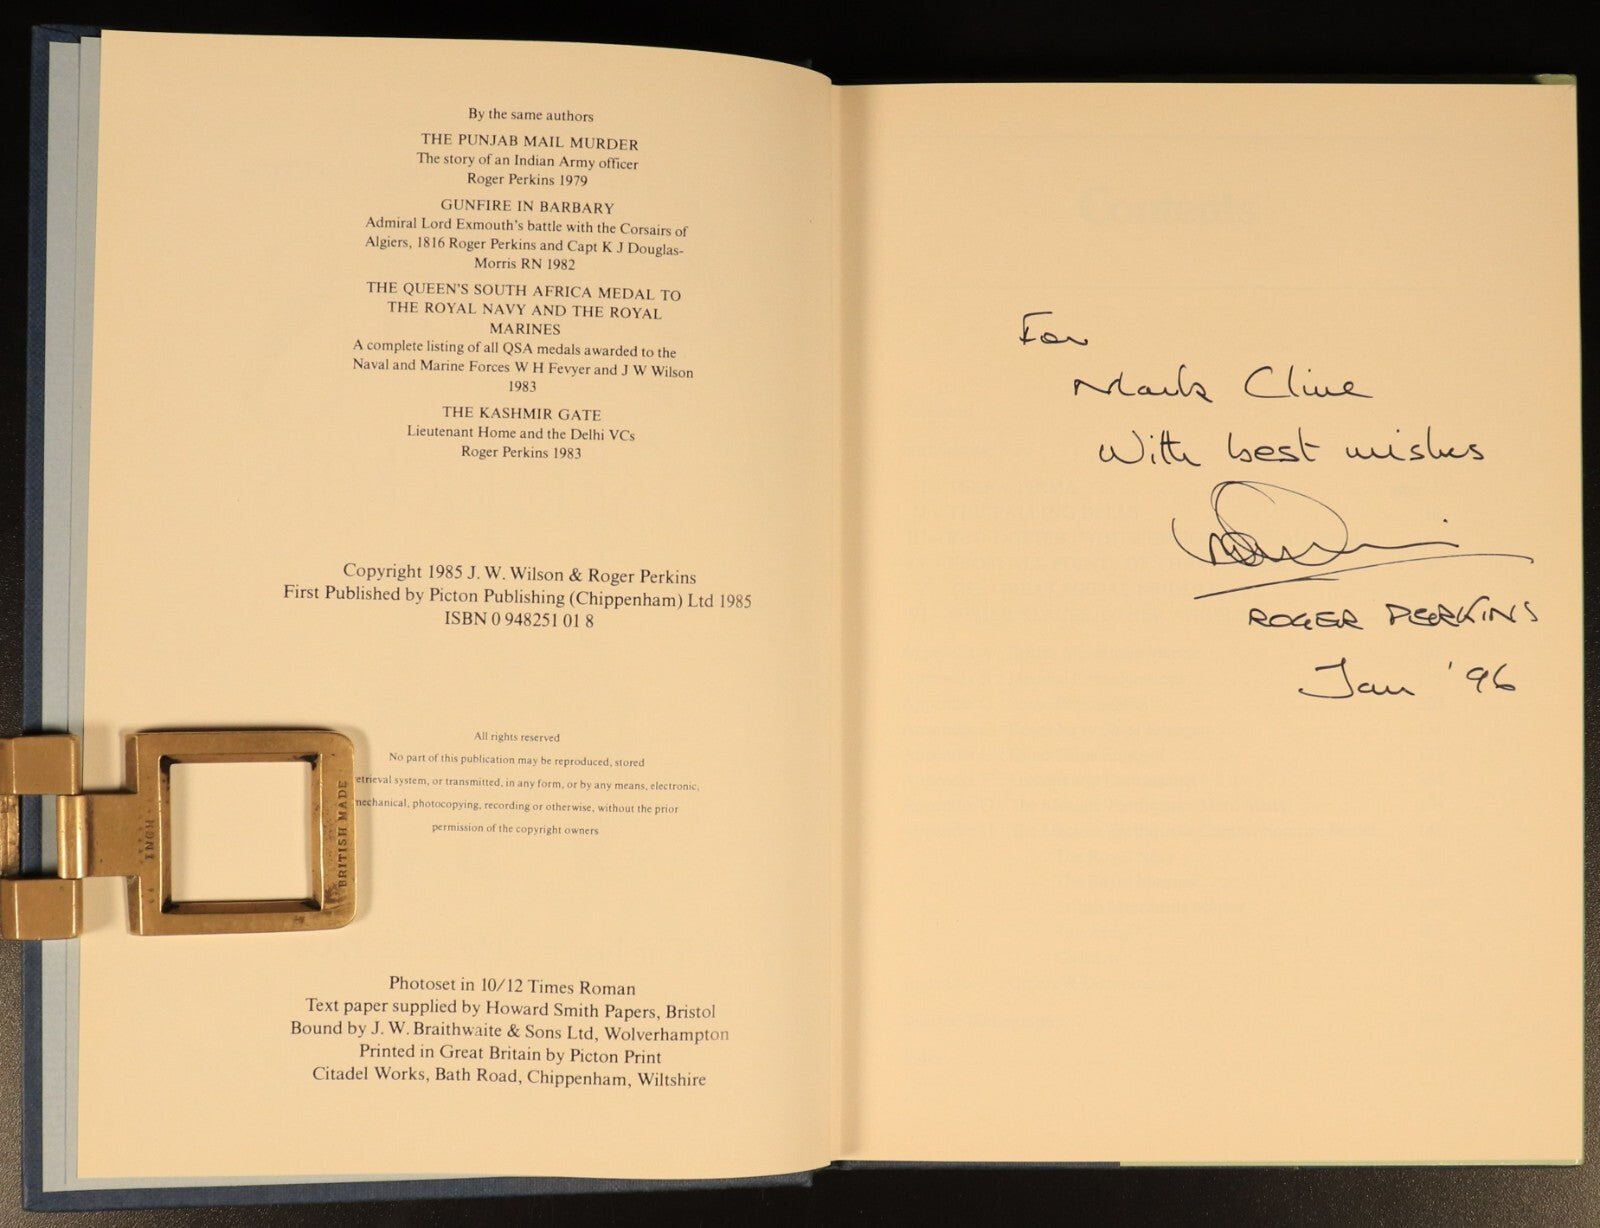 By the same authors
THE PUNJAB MAIL MURDER
The story of an Indian Army officer
Roger Perkins 1979
GUNFIRE IN BARBARY
Admiral Lord Exmouth's battle with the Corsairs of
Algiers, 1816 Roger Perkins and Capt K J Douglas-
Morris RN 1982
THE QUEEN'S SOUTH AFRICA MEDAL TO
THE ROYAL NAVY AND THE ROYAL
MARINES
A complete listing of all QSA medals awarded to the
Naval and Marine Forces W H Fevyer and J W Wilson
1983
THE KASHMIR GATE
Lieutenant Home and the Delhi VCs
Roger Perkins 1983
Copyright 1985 J. W. Wilson & Roger Perkins
First Published by Picton Publishing (Chippenham) Ltd 1985
ISBN 0 948251 01 8
All rights reserved
No part of this publication may be reproduced, stored
etrieval system, or transmitted, in any form, or by any means, electronic,
mechanical, photocopying, recording or otherwise, without the prior
permission of the copyright owners
INCH
BRITISH MADE
Photoset in 10/12 Times Roman
Text paper supplied by Howard Smith Papers, Bristol
Bound by J. W. Braithwaite & Sons Ltd, Wolverhampton
Printed in Great Britain by Picton Print
Citadel Works, Bath Road, Chippenham, Wiltshire
For
Mark Cline
With best wishes
ROGER PERKINS
Jan '96